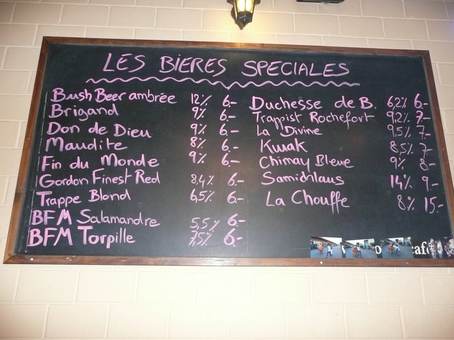 LES BIERES SPECIALES
Bush Beer ambrée 12% 6.-
Brigand 9% 6.-
Don de Dieu 9% 6.-
Maudite 8% 6.-
Fin du Monde 9% 6.-
Gordon Finest Red 8.4% 6.-
Trappe Blond 6,5% 6.-
BFM Salamandre 5,5% 6.-
BFM Torpille 7,5% 6.-
Duchesse de B. 6,2% 6.-
Trappist Rochefort 9,2% 7.-
La Divine 9.5% 7-
Kwak 8,5% 7-
Chimay Bleue 9% 8-
Samichlaus 14% 9-
La Chouffe 8% 15.-
café